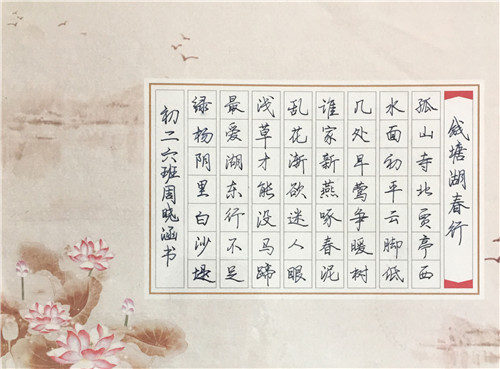 钱塘湖春行
孤山寺北贾亭西
水面初平云脚低
几处早莺争暖树
谁家新燕啄春泥
乱花渐欲迷人眼
浅草才能没马蹄
最爱湖东行不足
绿杨阴里白沙堤
初二六班周晓涵书